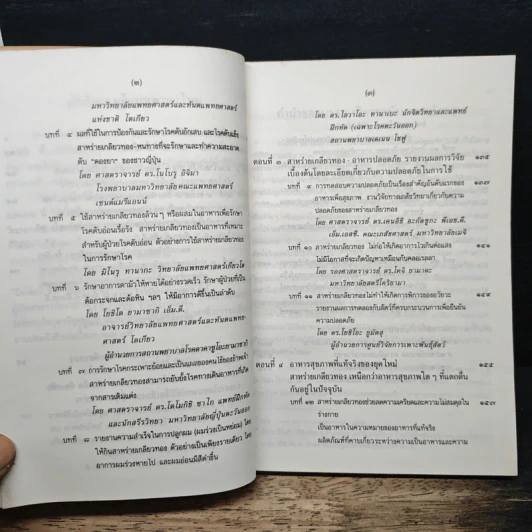 (๒)
มหาวิทยาลัยแพทยศาสตร์และทันตแพทยศาสตร์
แห่งชาติ โตเกียว
บทที่ ๔ ผลที่ใช้ในการป้องกันและรักษาโรคตับอักเสบ และโรคตับแข็ง
สาหร่ายเกลียวทอง-หนทางที่จะรักษาและทำความสะอาด
ตับ "ดองยา" ของชาวญี่ปุ่น
โดย ศาสตราจารย์ ดร.โนโบรุ อิจิมา
โรงพยาบาลมหาวิทยาลัยคณะแพทยศาสตร์
เซนต์แมรีแอนน์
บทที่ ๕ ใช้สาหร่ายเกลียวทองล้วน ๆ หรือผสมในอาหารเพื่อรักษา
โรคตับอ่อนเรื้อรัง สาหร่ายเกลียวทองเป็นอาหารที่เหมาะ
สำหรับผู้ป่วยโรคตับอ่อน ตัวอย่างการใช้สาหร่ายเกลียวทอง
ในการรักษาโรค
โดย มิโนรุ ทานากะ วิทยาลัยแพทยศาสตร์เกียวโต
บทที่ ๖ รักษาอาการตามัวให้หายได้อย่างรวดเร็ว รักษาผู้ป่วยที่เป็น
ต้อกระจกและต้อหิน ฯลฯ ให้มีอาการดีขึ้นเป็นลำดับ
โดย โยชิโต ยามาซากิ เอ็ม.ดี.
อาจารย์วิทยาลัยแพทยศาสตร์และทันตแพทย-
ศาสตร์ โตเกียว
ผู้อำนวยการสถานพยาบาลโรคตาคาชูโอะยามาซากิ
บทที่ ๗ การรักษาโรคกระเพาะอ่อยและเป็นแผลของคนไข้ของข้าพเจ้า
สาหร่ายเกลียวทองสามารถยับยั้งโรคทางเดินอาหารที่เกิด
จากสารเดิมแต่ง
โดย ศาสตราจารย์ ดร.โตโมกิชิ ซาไก แพทย์ฝึกหัด
และนักสรีรวิทยา มหาวิทยาลัยญี่ปุ่นตะวันออก
บทที่ ๘ รายงานความสำเร็จในการปลูกผม (ผมร่วงเป็นหย่อม) โดย
ให้กินสาหร่ายเกลียวทอง ตัวอย่างเป็นเพียงรายเดียว โดย
อาการผมร่วงหายไป และผมอ่อนมีสีดำขึ้น
(๓)
โดย ดร.โอวาโอะ ทานาเบะ นักจิตวิทยาและแพทย์
ฝึกหัด (เฉพาะโรคตะวันออก)
สถานพยาบาลเคเมน โชฟู
ตอนที่ ๓ สาหร่ายเกลียวทอง - อาหารปลอดภัย รายงานผลการวิจัย ๑๓๕
เบื้องต้นโดยละเอียดเกี่ยวกับความปลอดภัยในการใช้
บทที่ ๙ การทดสอบความปลอดภัยเป็นเรื่องสำคัญอันดับแรกของ ๑๓๗
อาหารเพื่อสุขภาพ งานวิจัยทางเภสัชวิทยาเกี่ยวกับความ
ปลอดภัยของสาหร่ายเกลียวทอง
โดย ศาสตราจารย์ ดร.เคนอิชิ อะคัตซูกะ พีเอช.ดี.
เอ็ม.เอสซี. คณะเภสัชศาสตร์ มหาวิทยาลัยเมจิ
บทที่ ๑๐ สาหร่ายเกลียวทอง ไม่ก่อให้เกิดอาการไวเกินต่อแสง ๑๕๑
ไม่มีโอกาสที่จะเกิดปัญหาเหมือนกับคลอเรลลา
โดย รองศาสตราจารย์ ดร.โคจิ ยามาดะ
มหาวิทยาลัยสัตว์โตริยามา
บทที่ ๑๑ สาหร่ายเกลียวทองไม่ทำให้เกิดการพิการของอวัยวะ ๑๕๙
รายงานผลการทดลองกับสัตว์ที่ควบกระบวนการเพื่อยืนยัน
ความปลอดภัย
โดย ดร.โยชิโอะ ยูมัตสุ
ผู้อำนวยการศูนย์วิจัยการเพาะพันธุ์สัตว์
ตอนที่ ๔ อาหารสุขภาพที่แท้จริงของยุคใหม่ ๑๕๕
สาหร่ายเกลียวทอง เหนือกว่าอาหารสุขภาพใด ๆ ที่แตกตื่น
กันอยู่ในปัจจุบัน
บทที่ ๑๒ สาหร่ายเกลียวทองช่วยลดความเครียดและความไม่สมดุลใน
ร่างกาย
เป็นอาหารในความหมายของอาหารที่แท้จริง
ผลิตภัณฑ์ที่คาบเกี่ยวระหว่างความเป็นอาหารและความ